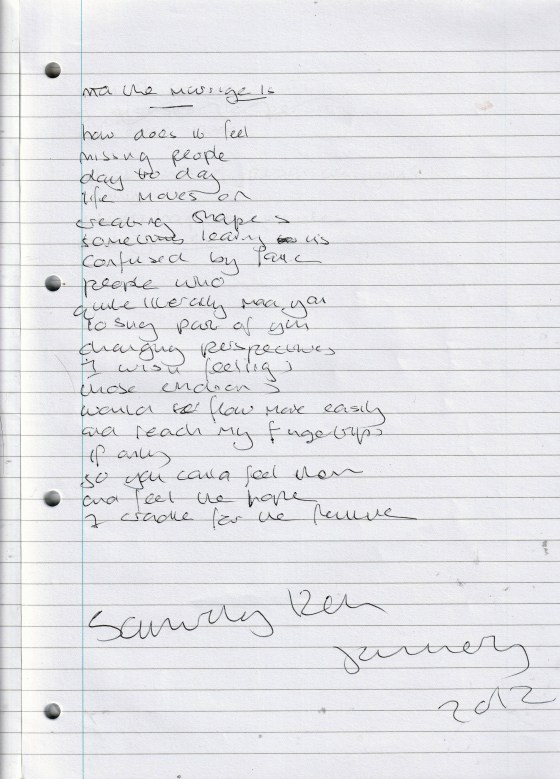 and the message is
how does it feel
missing people
day to day
life moves on
creating shapes
sometimes leaving us
confused by
people who
quite literally made you
losing part of you
changing perspectives
I wish feelings
those emotions
would flow more easily
and reach my fingertips
if only
so you could feel them
and feel the hope
I cradle for the future
Sandy
January
2012